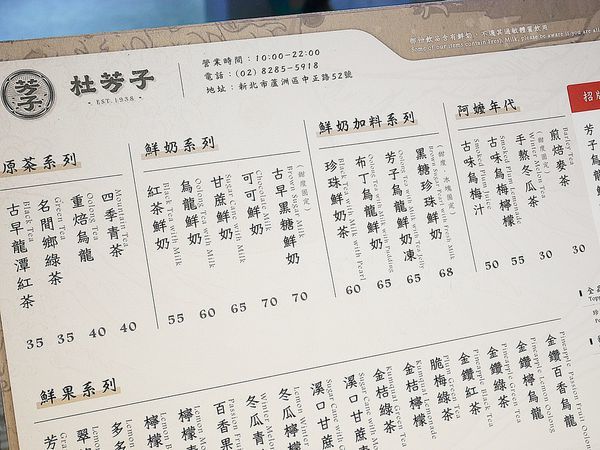 部分飲品含有鮮奶,不適其過敏體質飲用
Some of our items contain Fresh Milk, please be aware if you are all
芳子
杜芳子
• EST. 1938 •
營業時間:10:00-22:00
電話:(02) 8285-5918
地址:新北市蘆洲區中正路52號
原茶系列
古早龍潭紅茶 Black Tea 35
名間鄉綠茶 Green Tea 35
重焙烏龍 Oolong Tea 40
四季青茶 Mountain Tea 40
鮮奶系列
紅茶鮮奶 Black Tea with Milk 55
烏龍鮮奶 Oolong Tea with Milk 60
甘蔗鮮奶 Sugar Cane with Milk 65
可可鮮奶 Chocolate Milk 70
古早黑糖鮮奶 Brown Sugar Milk (甜度固定) 70
鮮奶加料系列
珍珠鮮奶茶 Black Tea Milk with Pearl 60
布丁烏龍鮮奶 Oolong Tea Milk with Pudding 65
芳子烏龍鮮奶凍 Oolong Tea Milk with Tea Jelly 65
黑糖珍珠鮮奶 Brown Sugar Pearl with Fresh Milk (甜度、冰塊固定) 68
阿嬤年代
古味烏梅汁 Smoked Plum Juice 50
古味烏梅檸檬 Smoked Plum Lemonade 55
手熬冬瓜茶 Winter Melon Tea (甜度固定) 30
煎焙麥茶 Barley Tea 30
招牌
30
鮮果系列
檸檬
檸檬
百香果
冬瓜青
冬瓜檸檬
溪口甘蔗
溪口甘蔗
金桔綠茶
金桔檸檬 Kumquat Lemonade
脆梅綠茶 Plum Green Tea
金鑽紅茶 Pineapple Black Tea
金鑽綠茶 Pineapple Green Tea
金鑽檸烏龍 Pineapple Lemon Oolong
金鑽百香烏龍 Pineapple Passion Fruit Oolong